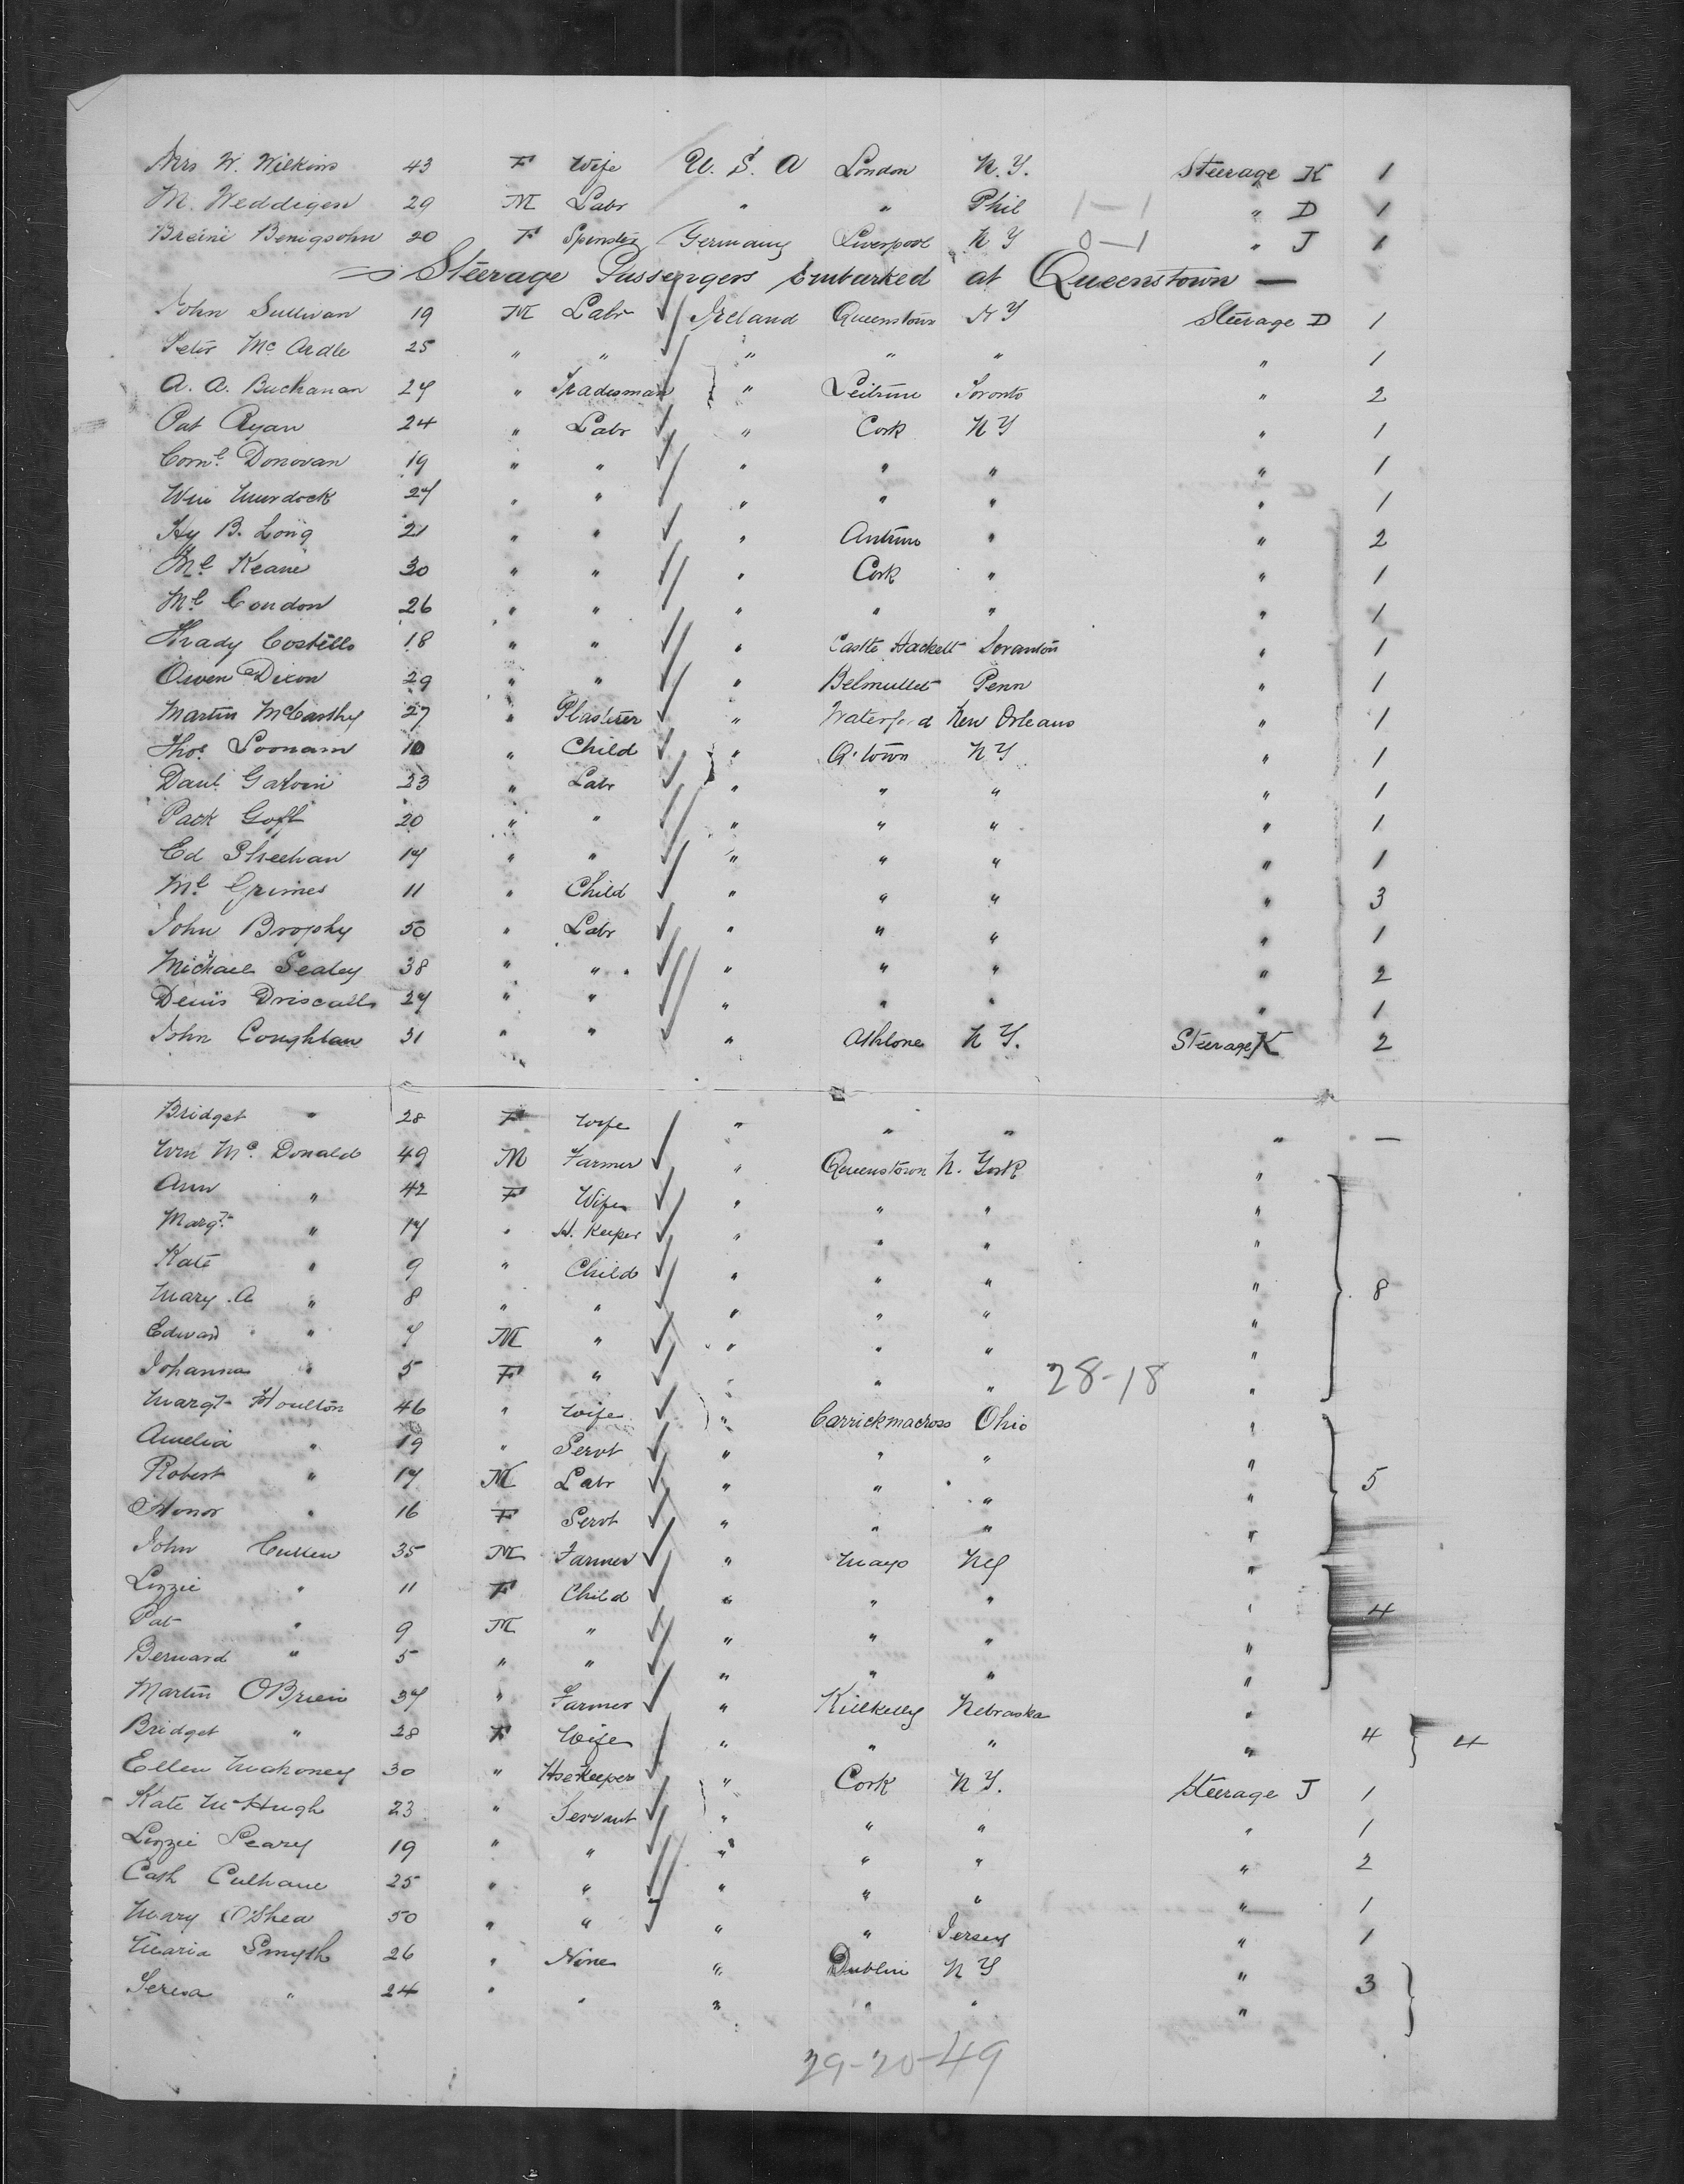 Mrs W. Wilkins 43 F Wife U. S. A London N. Y. Steerage K 1
M. Weddigen 29 M Labr " " Phil 1—1 " D 1
Breini Benigsohn 20 F Spinster Germany Liverpool N Y 0—1 " J 1
Steerage Passengers Embarked at Queenstown —
John Sullivan 19 M Labr Ireland Queenstown N Y Steerage D 1
Peter Mc Ardle 25 " " " " " " 1
A. A. Buchanan 27 " Tradesman " Leitrim Toronto " 2
Pat Ryan 24 " Labr " Cork N Y " 1
Cornl Donovan 19 " " " " " " 1
Wm Murdock 27 " " " " " " 1
Hy B. Long 21 " " " Antrim " " 2
Ml Keane 30 " " " Cork " " 1
Ml Condon 26 " " " " " " 1
Thady Costello 18 " " " Castle Hackett Scranton " 1
Owen Dixon 29 " " " Belmullet Penn " 1
Martin McCarthy 27 " Plasterer " Waterford New Orleans " 1
Thos Loonam 10 " Child " Q. town N Y " 1
Danl Galvin 23 " Labr " " " " 1
Patk Goff 20 " " " " " " 1
Ed Sheehan 17 " " " " " " 1
Ml Grimes 11 " Child " " " " 3
John Brophy 50 " Labr " " " " 1
Michael Sealey 38 " " " " " " 2
Denis Driscoll 27 " " " " " " 1
John Coughlan 31 " " " Athlone N Y. Steerage K 2
Bridget " 28 F Wife " " " " —
Wm Mc. Donald 49 M Farmer " Queenstown N. York "
Ann " 42 F Wife " " " "
Margt " 17 " H. Keeper " " " "
Kate " 9 " Child " " " "
Mary. A " 8 " " " " " " 8
Edward " 7 M " " " " "
Johanna " 5 F " " " " 28-18 "
Margt Houlton 46 " Wife " Carrickmacross Ohio "
Amelia " 19 " Servt " " " "
Robert " 17 M Labr " " " " 5
Honor " 16 F Servt " " " "
John Cullen 35 M Farmer " Mayo N Y "
Lizzie " 11 F Child " " " " 4
Pat " 9 M " " " " "
Bernard " 5 " " " " " "
Martin OBrien 37 " Farmer " Killkelly Nebraska "
Bridget " 28 F Wife " " " " 4 4
Ellen Mahoney 30 " Hsekeeper " Cork N Y. Steerage J 1
Kate McHugh 23 " Servant " " " " 1
Lizzie Leary 19 " " " " " " 2
Cath Culhane 25 " " " " " " 1
Mary O'Shea 50 " " " " Jersey " 1
Maria Smyth 26 " None " Dublin N Y " 3
Teresa " 24 " " " " " "
29-20-49